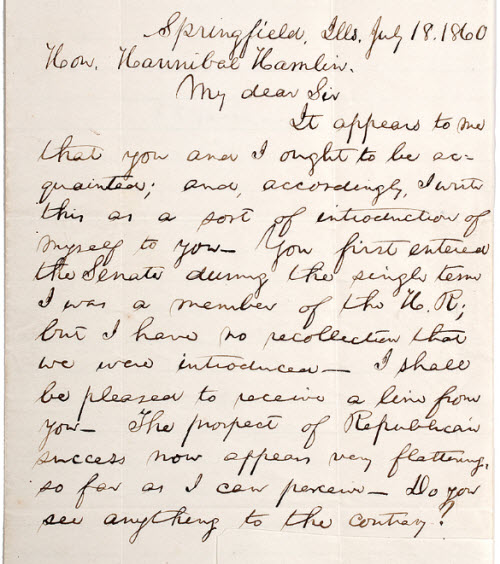 Springfield, Ills. July 18. 1860
Hon. Hannibal Hamlin.
My dear Sir
It appears to me
that you and I ought to be ac-
quainted; and, accordingly, I write
this as a sort of introduction of
myself to you— You first entered
the Senate during the single term
I was a member of the H. R;
but I have no recollection that
we were introduced— I shall
be pleased to receive a line from
you— The prospect of Republican
success now appears very flattering,
so far as I can perceive— Do you
see anything to the contrary?